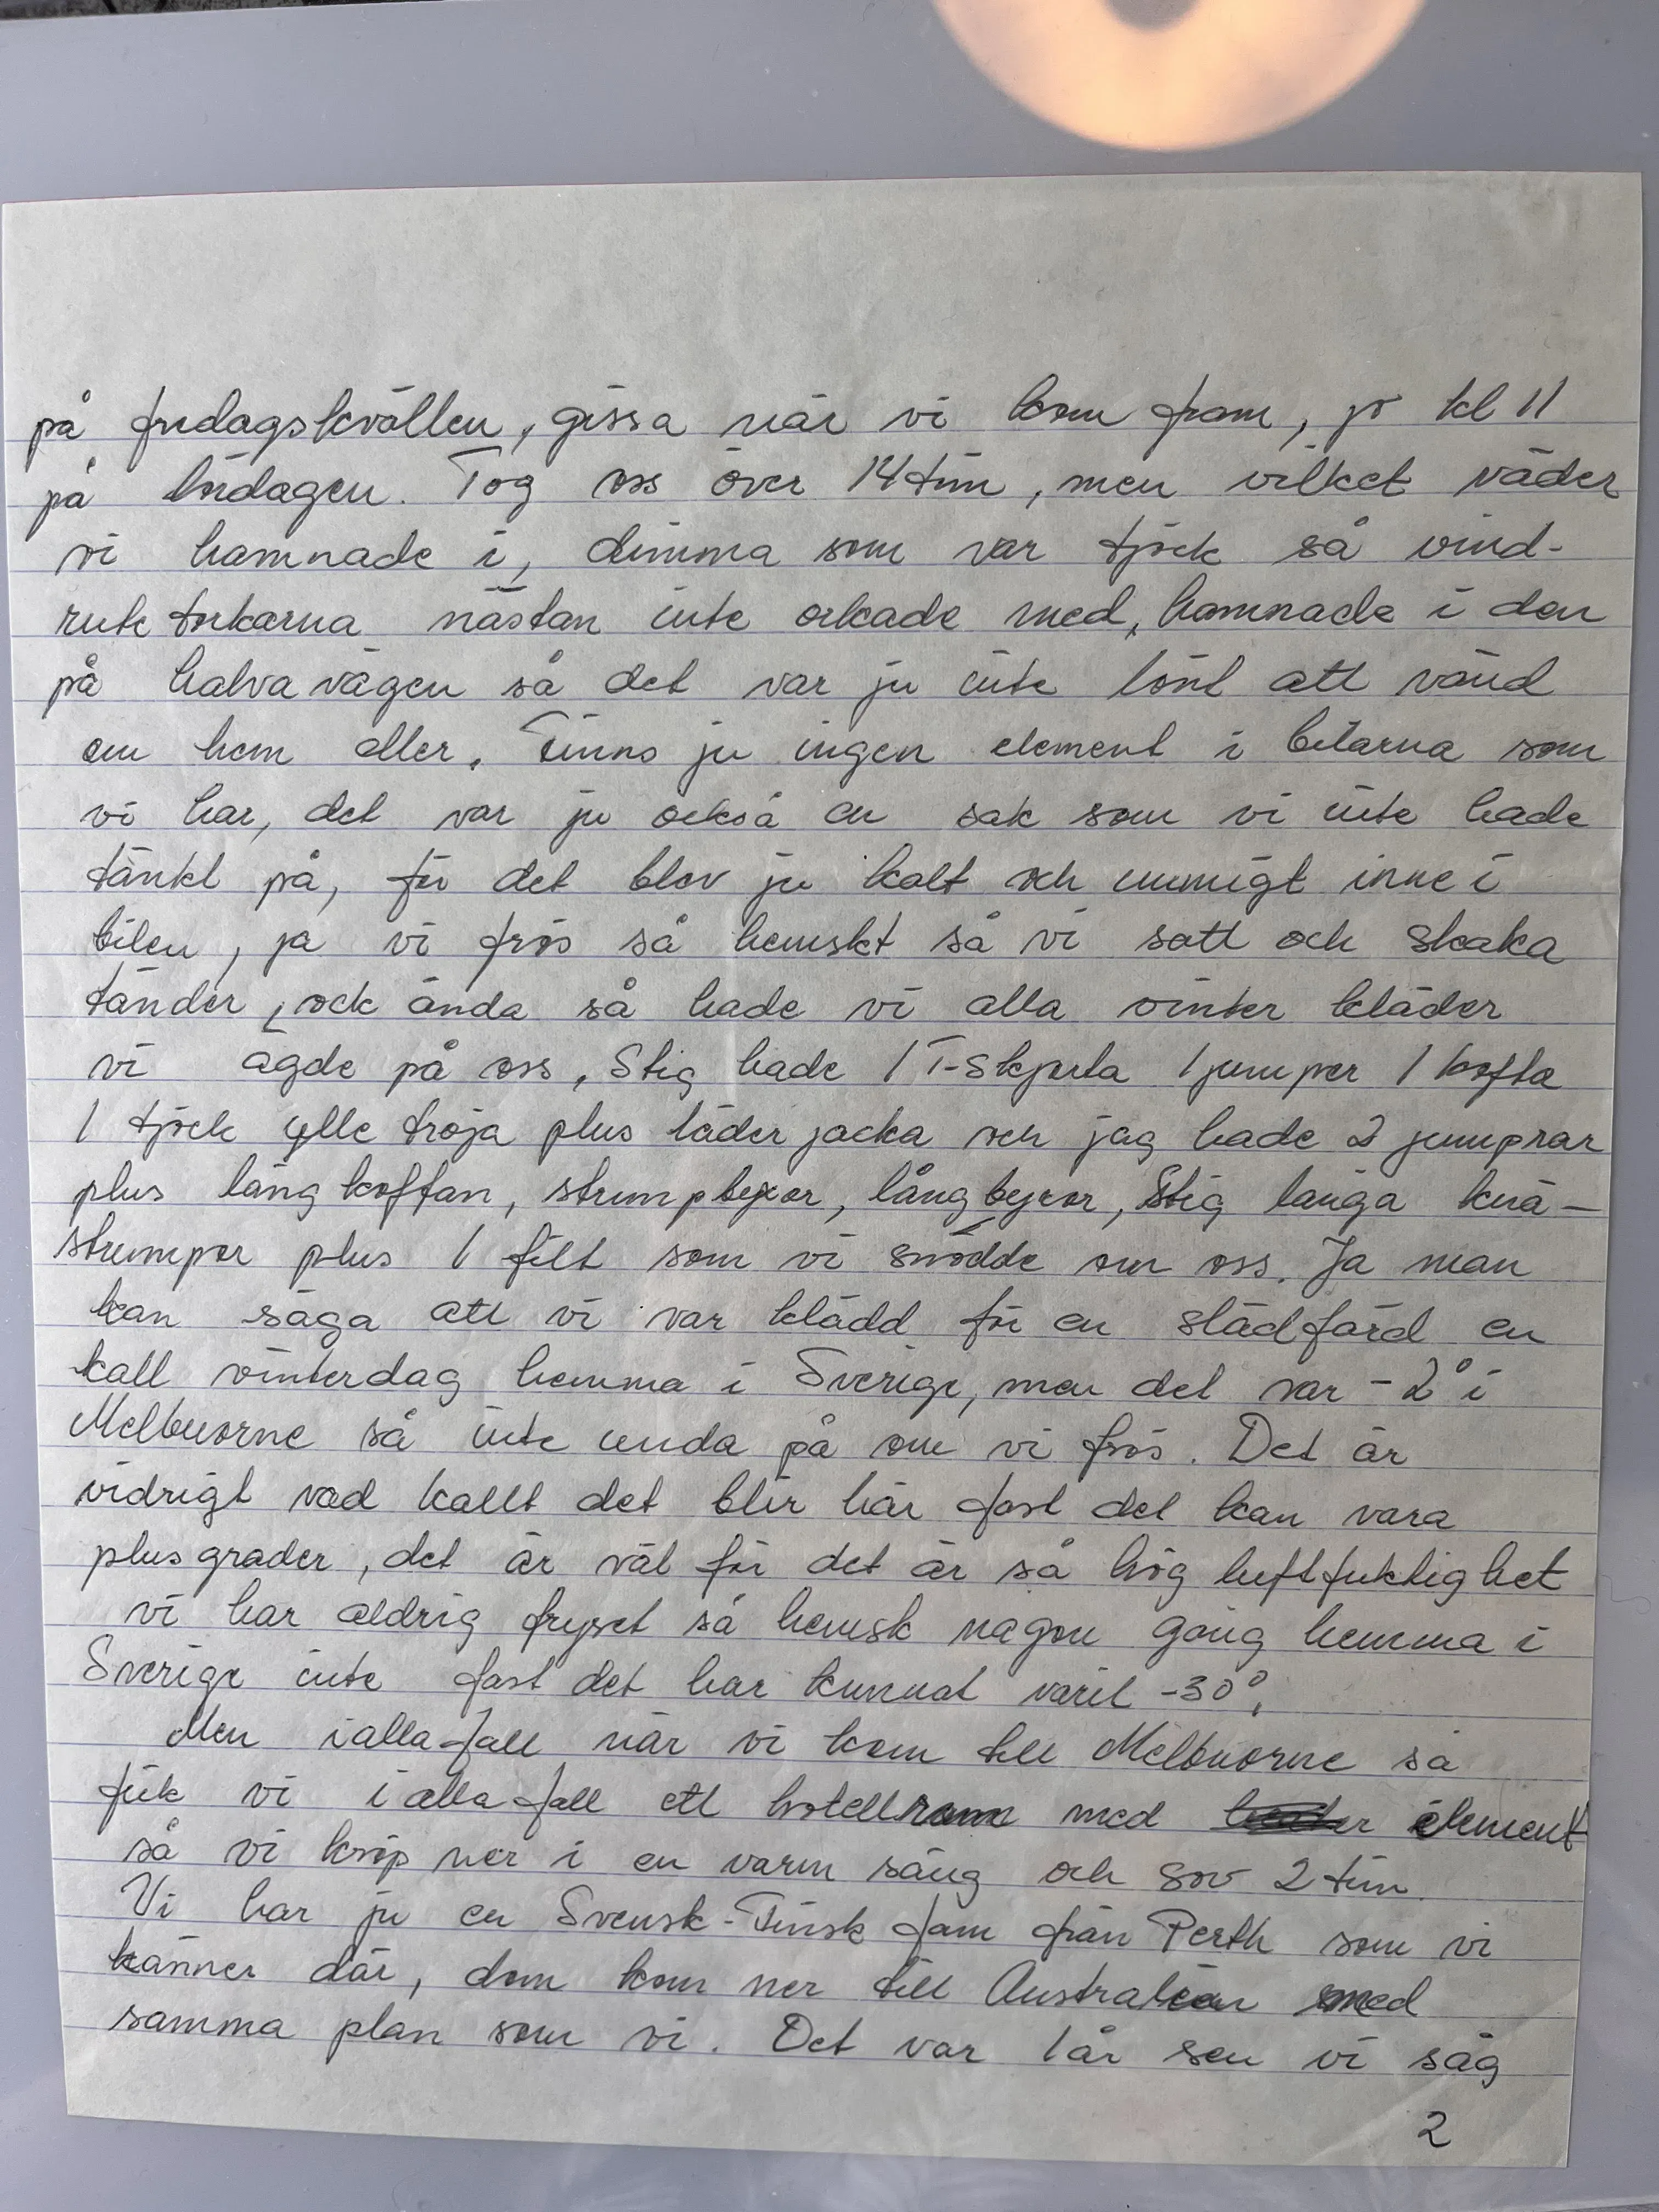 på fredagskvällen, gissa när vi kom fram, jo kl 11
på lördagen. Tog oss över 14 tim, men vilket väder
vi hamnade i, dimma som var tjock så vind-
rute torkarna nästan inte orkade med, hamnade i den
på halva vägen så det var ju inte lönt att vänd
om hem eller. Finns ju ingen element i bilarna som
vi har, det var ju också en sak som vi inte hade
tänkt på, för det blev ju kalt och immigt inne i
bilen, ja vi frös så hemskt så vi satt och skaka
tänder, ock ända så hade vi alla vinter kläder
vi ägde på oss, Stig hade 1 T-Skjorta 1 jumper 1 kofta
1 tjock ylle tröja plus läder jacka och jag hade 2 jumprar
plus lång koftan, strumpbyxor, långbyxor, Stig långa knä-
strumpor plus 1 filt som vi snodde om oss. Ja man
kan säga att vi var klädd för en slädfärd en
kall vinterdag hemma i Sverige, men det var -2° i
Melbuorne så inte unda på om vi frös. Det är
vidrigt vad kallt det blir här fast det kan vara
plusgrader, det är väl för det är så hög luftfuktighet
vi har aldrig fryset så hemsk någon gång hemma i
Sverige inte fast det har kunnat varit -30°.
Men i alla fall när vi kom till Melbuorne så
fick vi i alla fall ett hotellrum med element
så vi kröp ner i en varm säng och sov 2 tim.
Vi har ju en Svensk-Finsk fam från Perth som vi
känner där, dom kom ner till Australien med
samma plan som vi. Det var 1 år sen vi såg
2